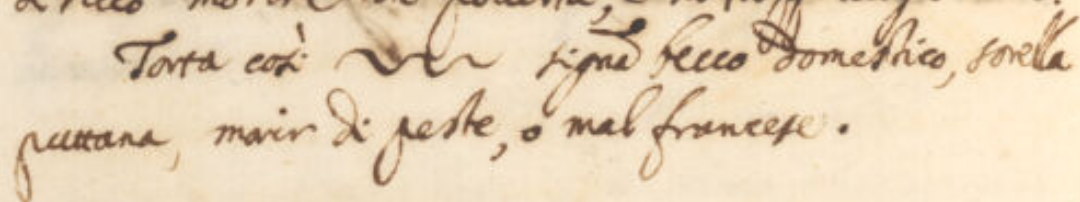 morire di povertà, e
Torta così signa becco domestico, sorella
puttana, morir di peste, o mal francese.